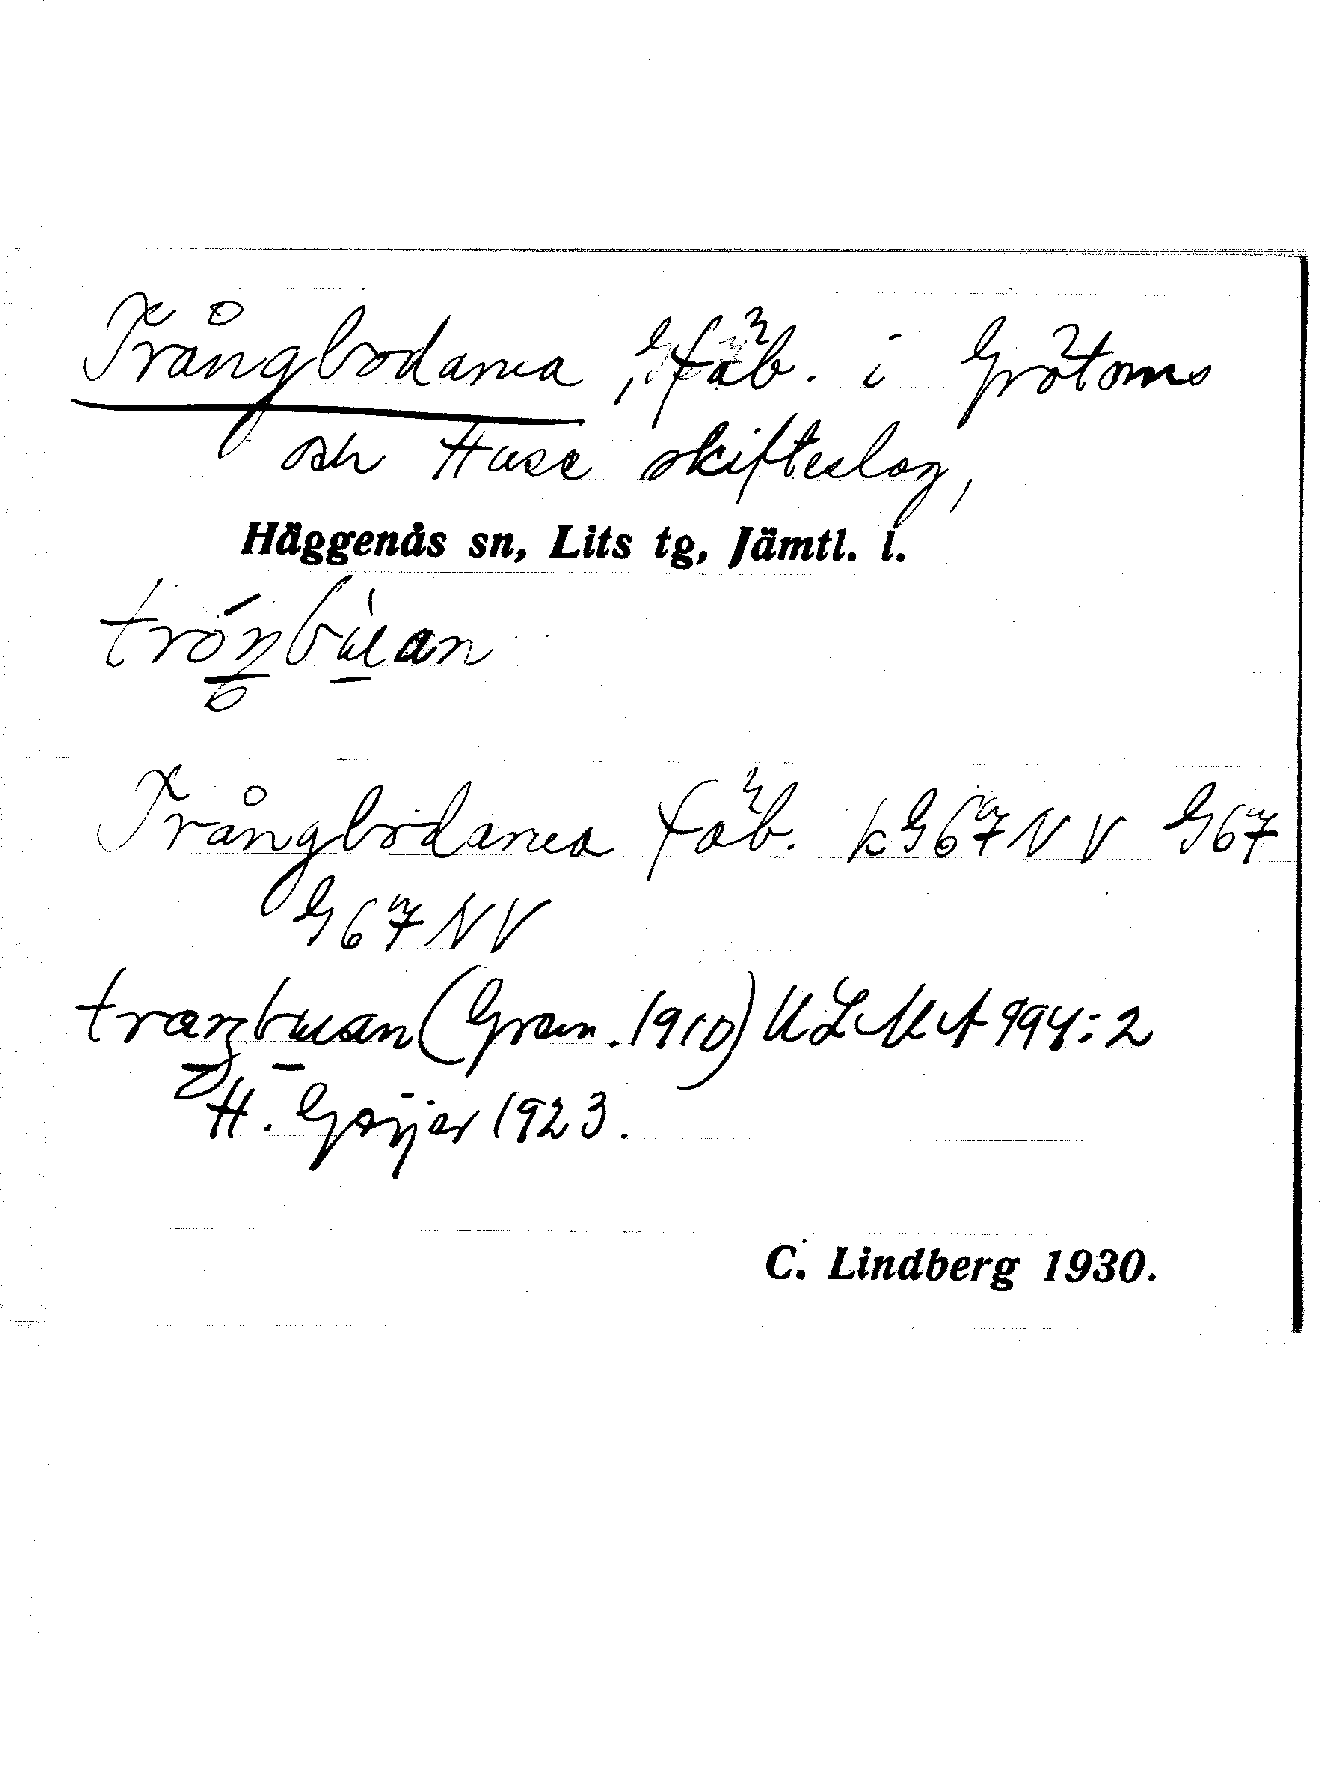 Trångbodarna, fäb. i Grötoms
och Huse skifteslag,
Häggenås sn, Lits tg, Jämtl. l.
Trångbodarna fäb. kG67NV G67
G67NV
(Gran. 1910) ULMA 994:2
H. Geijer 1923.
C. Lindberg 1930.